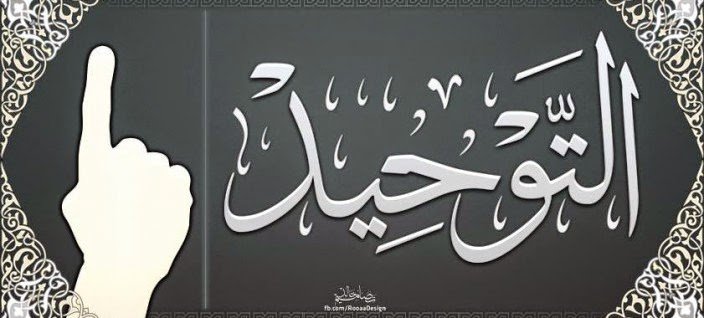 التَّوحِيد
fb.com/RooaaDesign